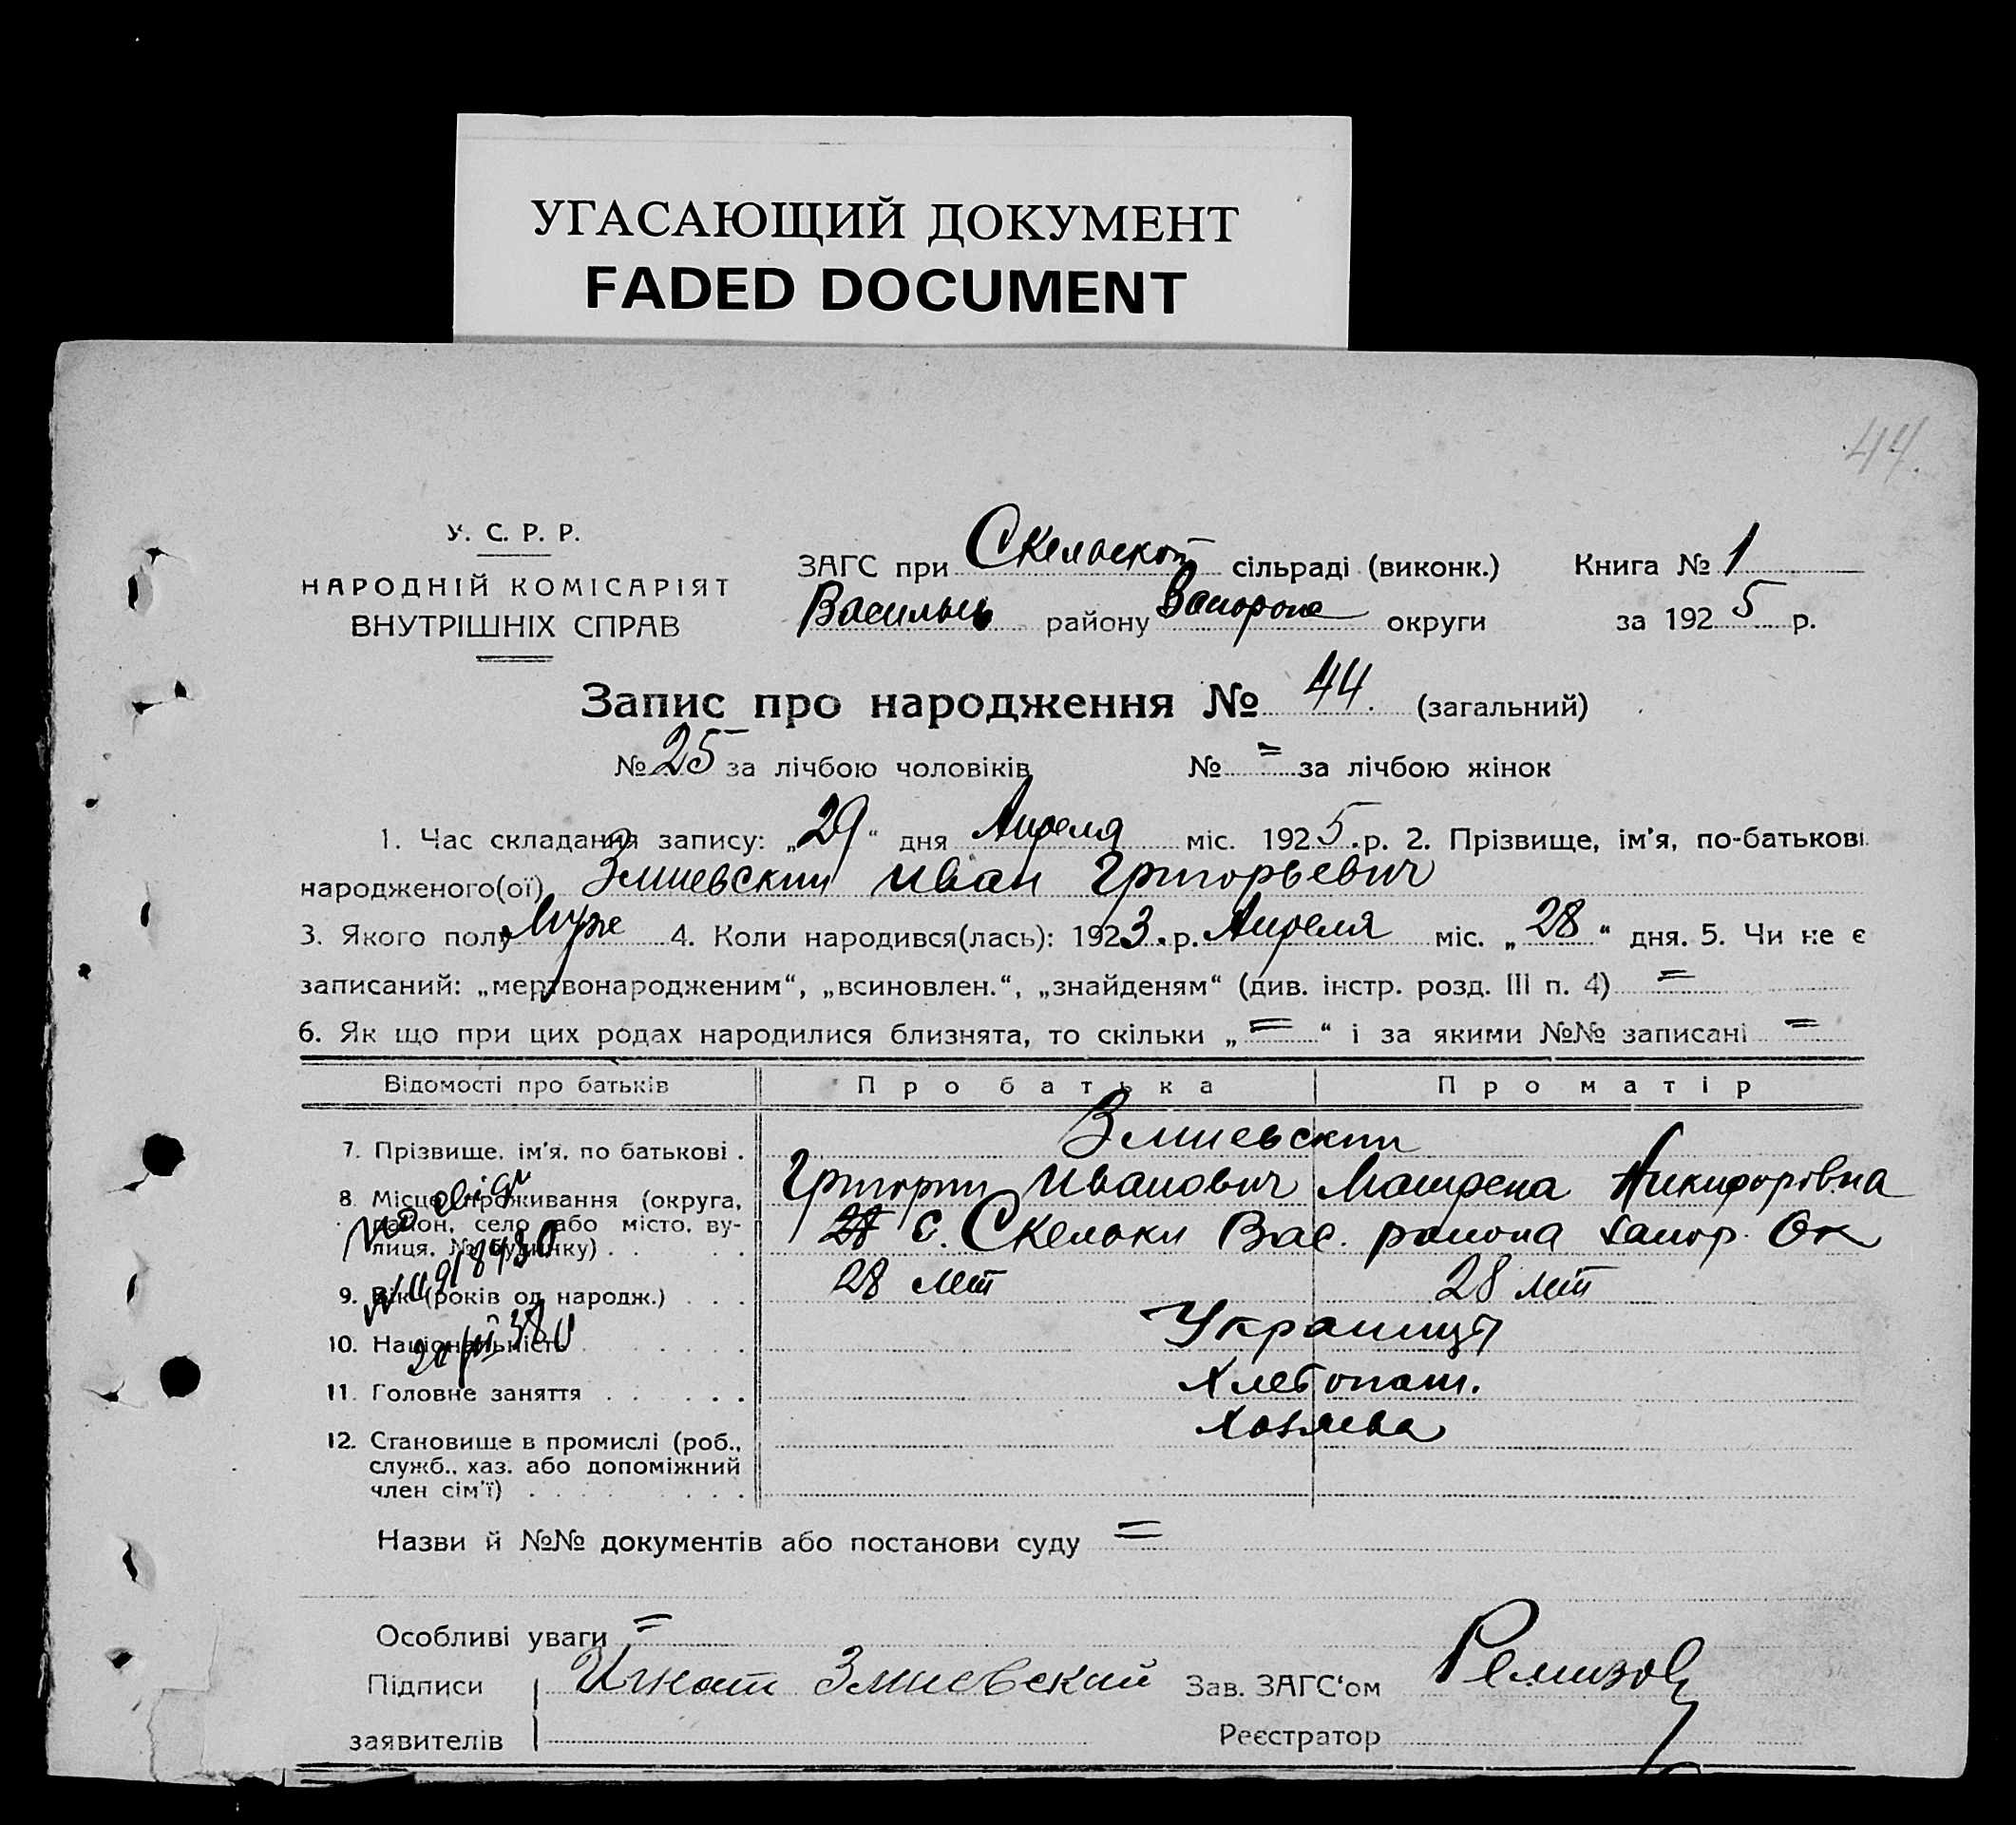 УГАСАЮЩИЙ ДОКУМЕНТ
FADED DOCUMENT
44.
У. С. Р. Р.
НАРОДНІЙ КОМІСАРІЯТ
ВНУТРІШНІХ СПРАВ
ЗАГС при Скельской сільраді (виконк.) Книга № 1
Васильев району Запорож округи за 1925 р.
Запис про народження № 44. (загальний)
№ 25 за лічбою чоловіків № = за лічбою жінок
1. Час складання запису: „29“ дня Апреля міс. 1925.р. 2. Прізвище, ім'я, по-батькові
народженого(ої) Змиевский Иван Григорьевич
3. Якого полу Муже 4. Коли народився(лась): 1923.р. Апреля міс. „28“ дня. 5. Чи не є
записаний: „мертвонародженим“, „всиновлен.“, „знайденям“ (див. інстр. розд. III п. 4) =
6. Як що при цих родах народилися близнята, то скільки „=“ і за якими №№ записані =
Відомості про батьків Про батька Про матір
7. Прізвище, ім'я, по батькові . Змиевский
Григорий Иванович Матрена Никифоровна
8. Місце проживання (округа, район, село або місто, вулиця, № будинку) . . . . с. Скельки Вас. района Запор. Ок
9. Вік (років од народж.) . . . 28 лет 28 лет
10. Національність . . . . . . Украинцы
11. Головне заняття . . . . . . Хлебопаш.
12. Становище в промислі (роб., Хозяева
служб., хаз. або допоміжний
член сім'ї) . . . . . . . . .
Назви й №№ документів або постанови суду =
Особливі уваги =
Підписи Игнат Змиевский Зав. ЗАГС'ом Ремизов
заявителів Реєстратор